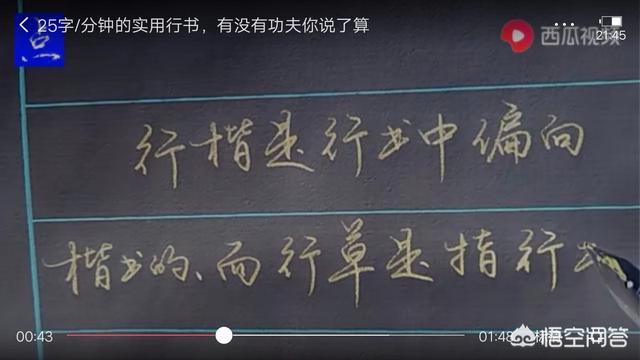 25字/分钟的实用行书，有没有功夫你说了算
21:45
点
西瓜视频
行楷是行书中偏向
楷书的、而行草是指行
00:43
01:48
悟空问答